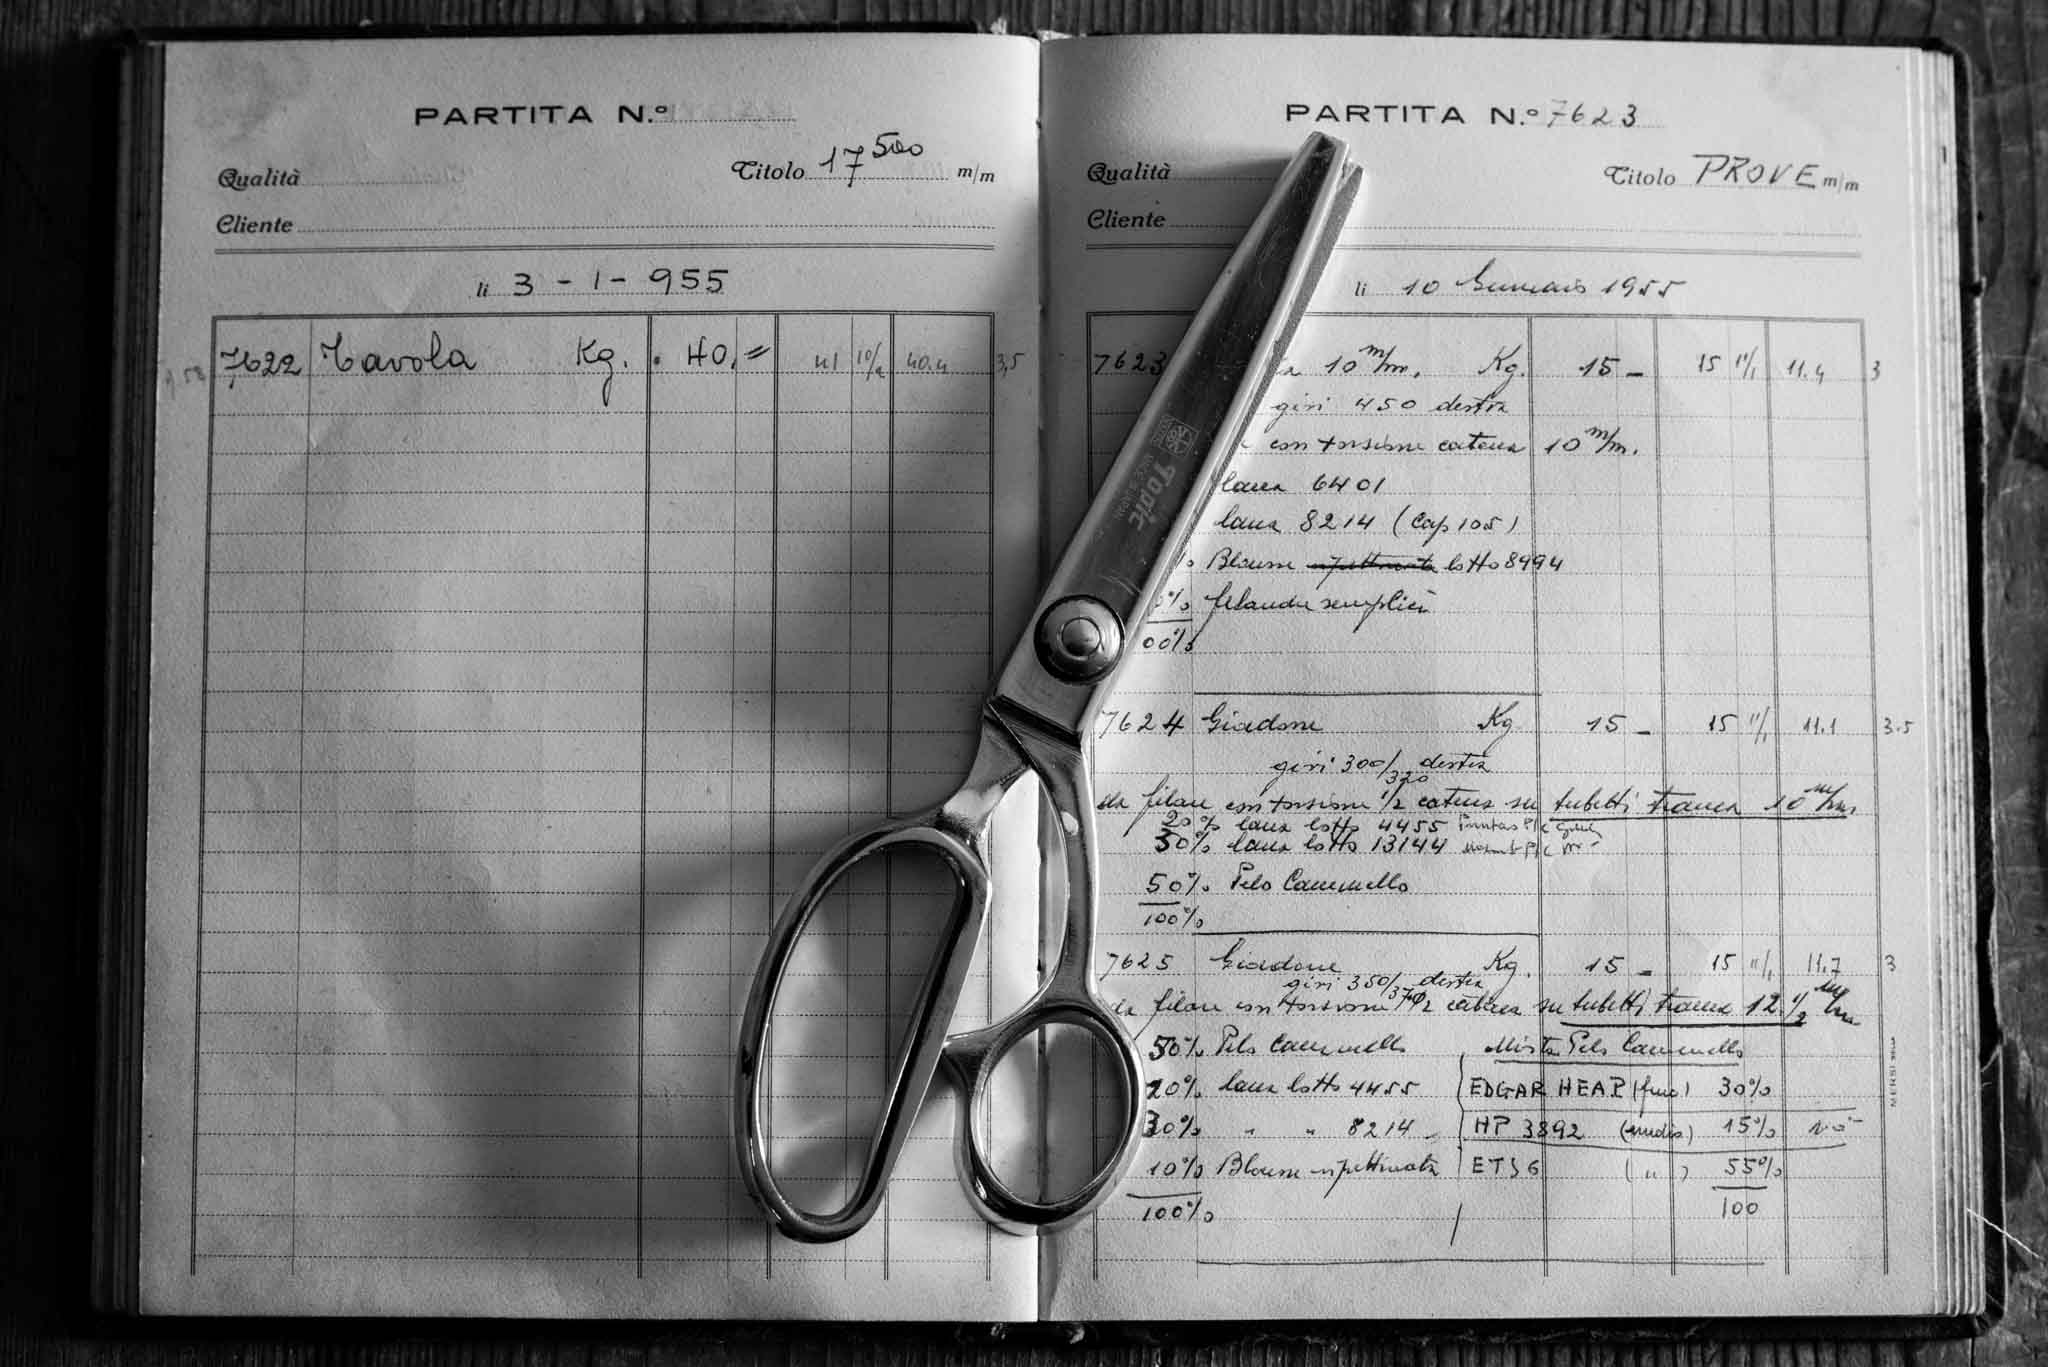 PARTITA N.º
Qualità Titolo 17 500 m/m
Cliente
li 3 - 1 - 955
7622 Tavola Kg. 40.= 41 10/2 40.4 3,5
PARTITA N.º 7623
Qualità Titolo PROVE m/m
Cliente
li 10 Gennaio 1955
7623 10 m/m. Kg. 15 - 15 11/1 11.4 3
giri 450 destra
con torsione catena 10 m/m.
lana 6401
lana 8214 (Cap 105)
% Blousse lotto 8994
% semplici
00%
7624 Giadone Kg 15 - 15 11/1 11.1 3.5
giri 300/320 destra
da filare con torsione 1/2 catena su tubetti trama 10 m/m
20% lana lotto 4455
30% lana lotto 13144
50% Pelo Cammello
100%
7625 Giadone Kg. 15 - 15 11/1 11.7 3
giri 350/370 destra
da filare con torsione 1/2 catena su tubetti trama 12 1/2 m/m
50% Pelo Cammello Mista Pelo Cammello
20% lana lotto 4455 EDGAR HEAP (fine) 30%
30% " " 8214 HP 3892 (medio) 15%
10% Blousse ripettinata ETS6 ( " ) 55%
100% 100
Topic